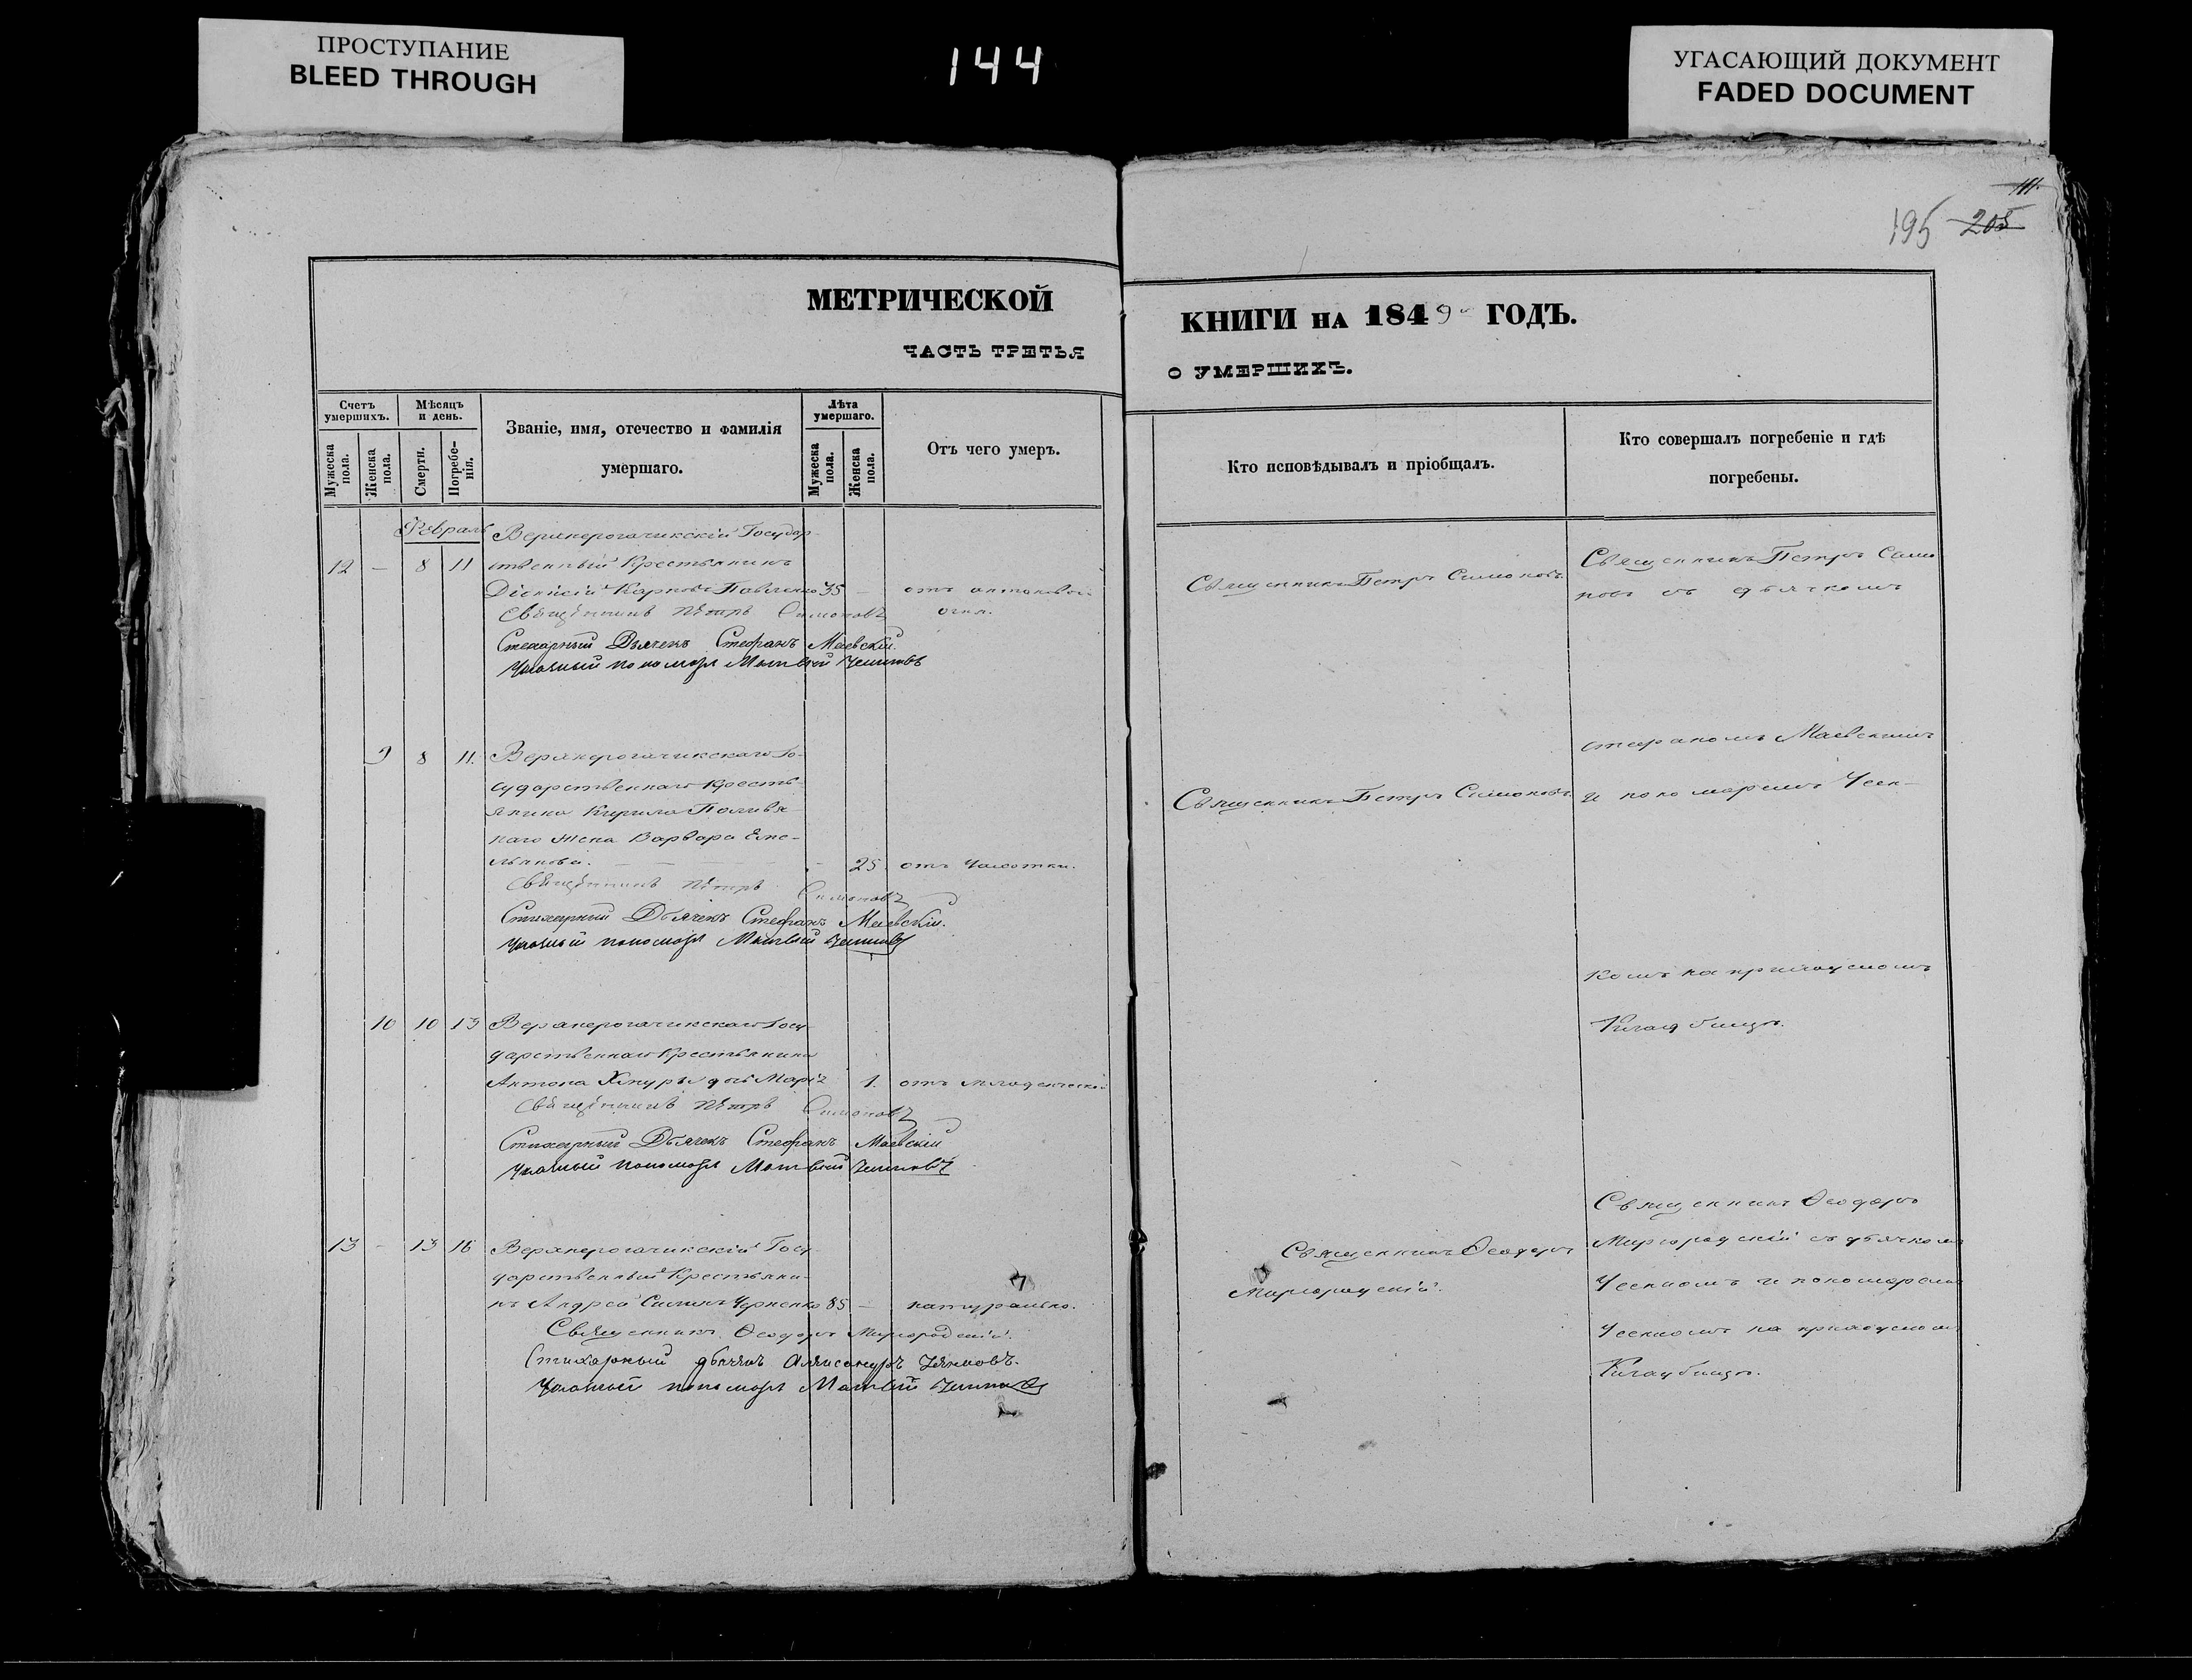 ПРОСТУПАНИЕ
BLEED THROUGH
144
УГАСАЮЩИЙ ДОКУМЕНТ
FADED DOCUMENT
111
195 205
МЕТРИЧЕСКОЙ
ЧАСТЬ ТРЕТЬЯ
КНИГИ НА 1849 ГОДЪ.
О УМЕРШИХЪ.
Счетъ умершихъ.
Мужеска пола.
Женска пола.
Мѣсяцъ и день.
Смерти.
Погребенія.
Званіе, имя, отечество и фамилія
умершаго.
Лѣта умершаго.
Мужеска пола.
Женска пола.
Отъ чего умеръ.
Кто исповѣдывалъ и пріобщалъ.
Кто совершалъ погребеніе и гдѣ
погребены.
Февраль Верхнерогачикскій Государ-
12 - 8 11 ственный Крестьянинъ
Діонисій Карповъ Павленко 35 - отъ антоновой
Священникъ Петръ Симоновъ огня.
Стихарный Дьячекъ Стефанъ Маевскій.
пономарь Матвей
Священникъ Петръ Симоновъ.
Священникъ Петръ Симо
новъ съ дьячкомъ
9 8 11. Верхнерогачикскаго Го-
сударственнаго Кресть-
янина Кирила Поливя
наго жена Варвара Еме-
льянова. - 25. отъ чахотки.
Священникъ Петръ Симоновъ
Стихарный Дьячекъ Стефанъ Маевскій.
пономарь Матвей
Священникъ Петръ Симоновъ.
Стефаномъ Маевскимъ
и пономаремъ
комъ на приходскомъ
Кладбищѣ.
10 10 13 Верхнерогачикскаго Госу-
дарственнаго Крестьянина
Антона дочь Марія 1. отъ младенческой
Священникъ Петръ Симоновъ
Стихарный Дьячекъ Стефанъ Маевскій
пономарь Матвей
13 - 13 16 Верхнерогачикскій Госу-
дарственный Крестьяни-
нъ Андрей Черненко 85 - натурально.
Священникъ Ѳеодоръ Миргородскій.
Стихарный дьячекъ Александръ
пономарь Матвей
Священникъ Ѳеодоръ
Миргородскій.
Священникъ Ѳеодоръ
Миргородскій съ дьячкомъ
и пономаремъ
на приходскомъ
Кладбищѣ.